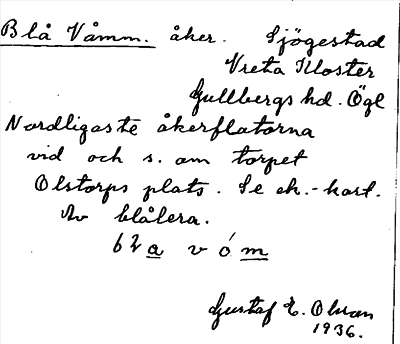 Blå Våmm. åker. Sjögestad
Vreta Kloster
Gullbergs hd. Ögl
Nordligaste åkerflatorna
vid och s. om torpet
Olstorps plats. Se ek.-kart.
Av blålera.
bl<u>a</u> v ó <u>m</u>
Gustaf E. Olsson
1936.